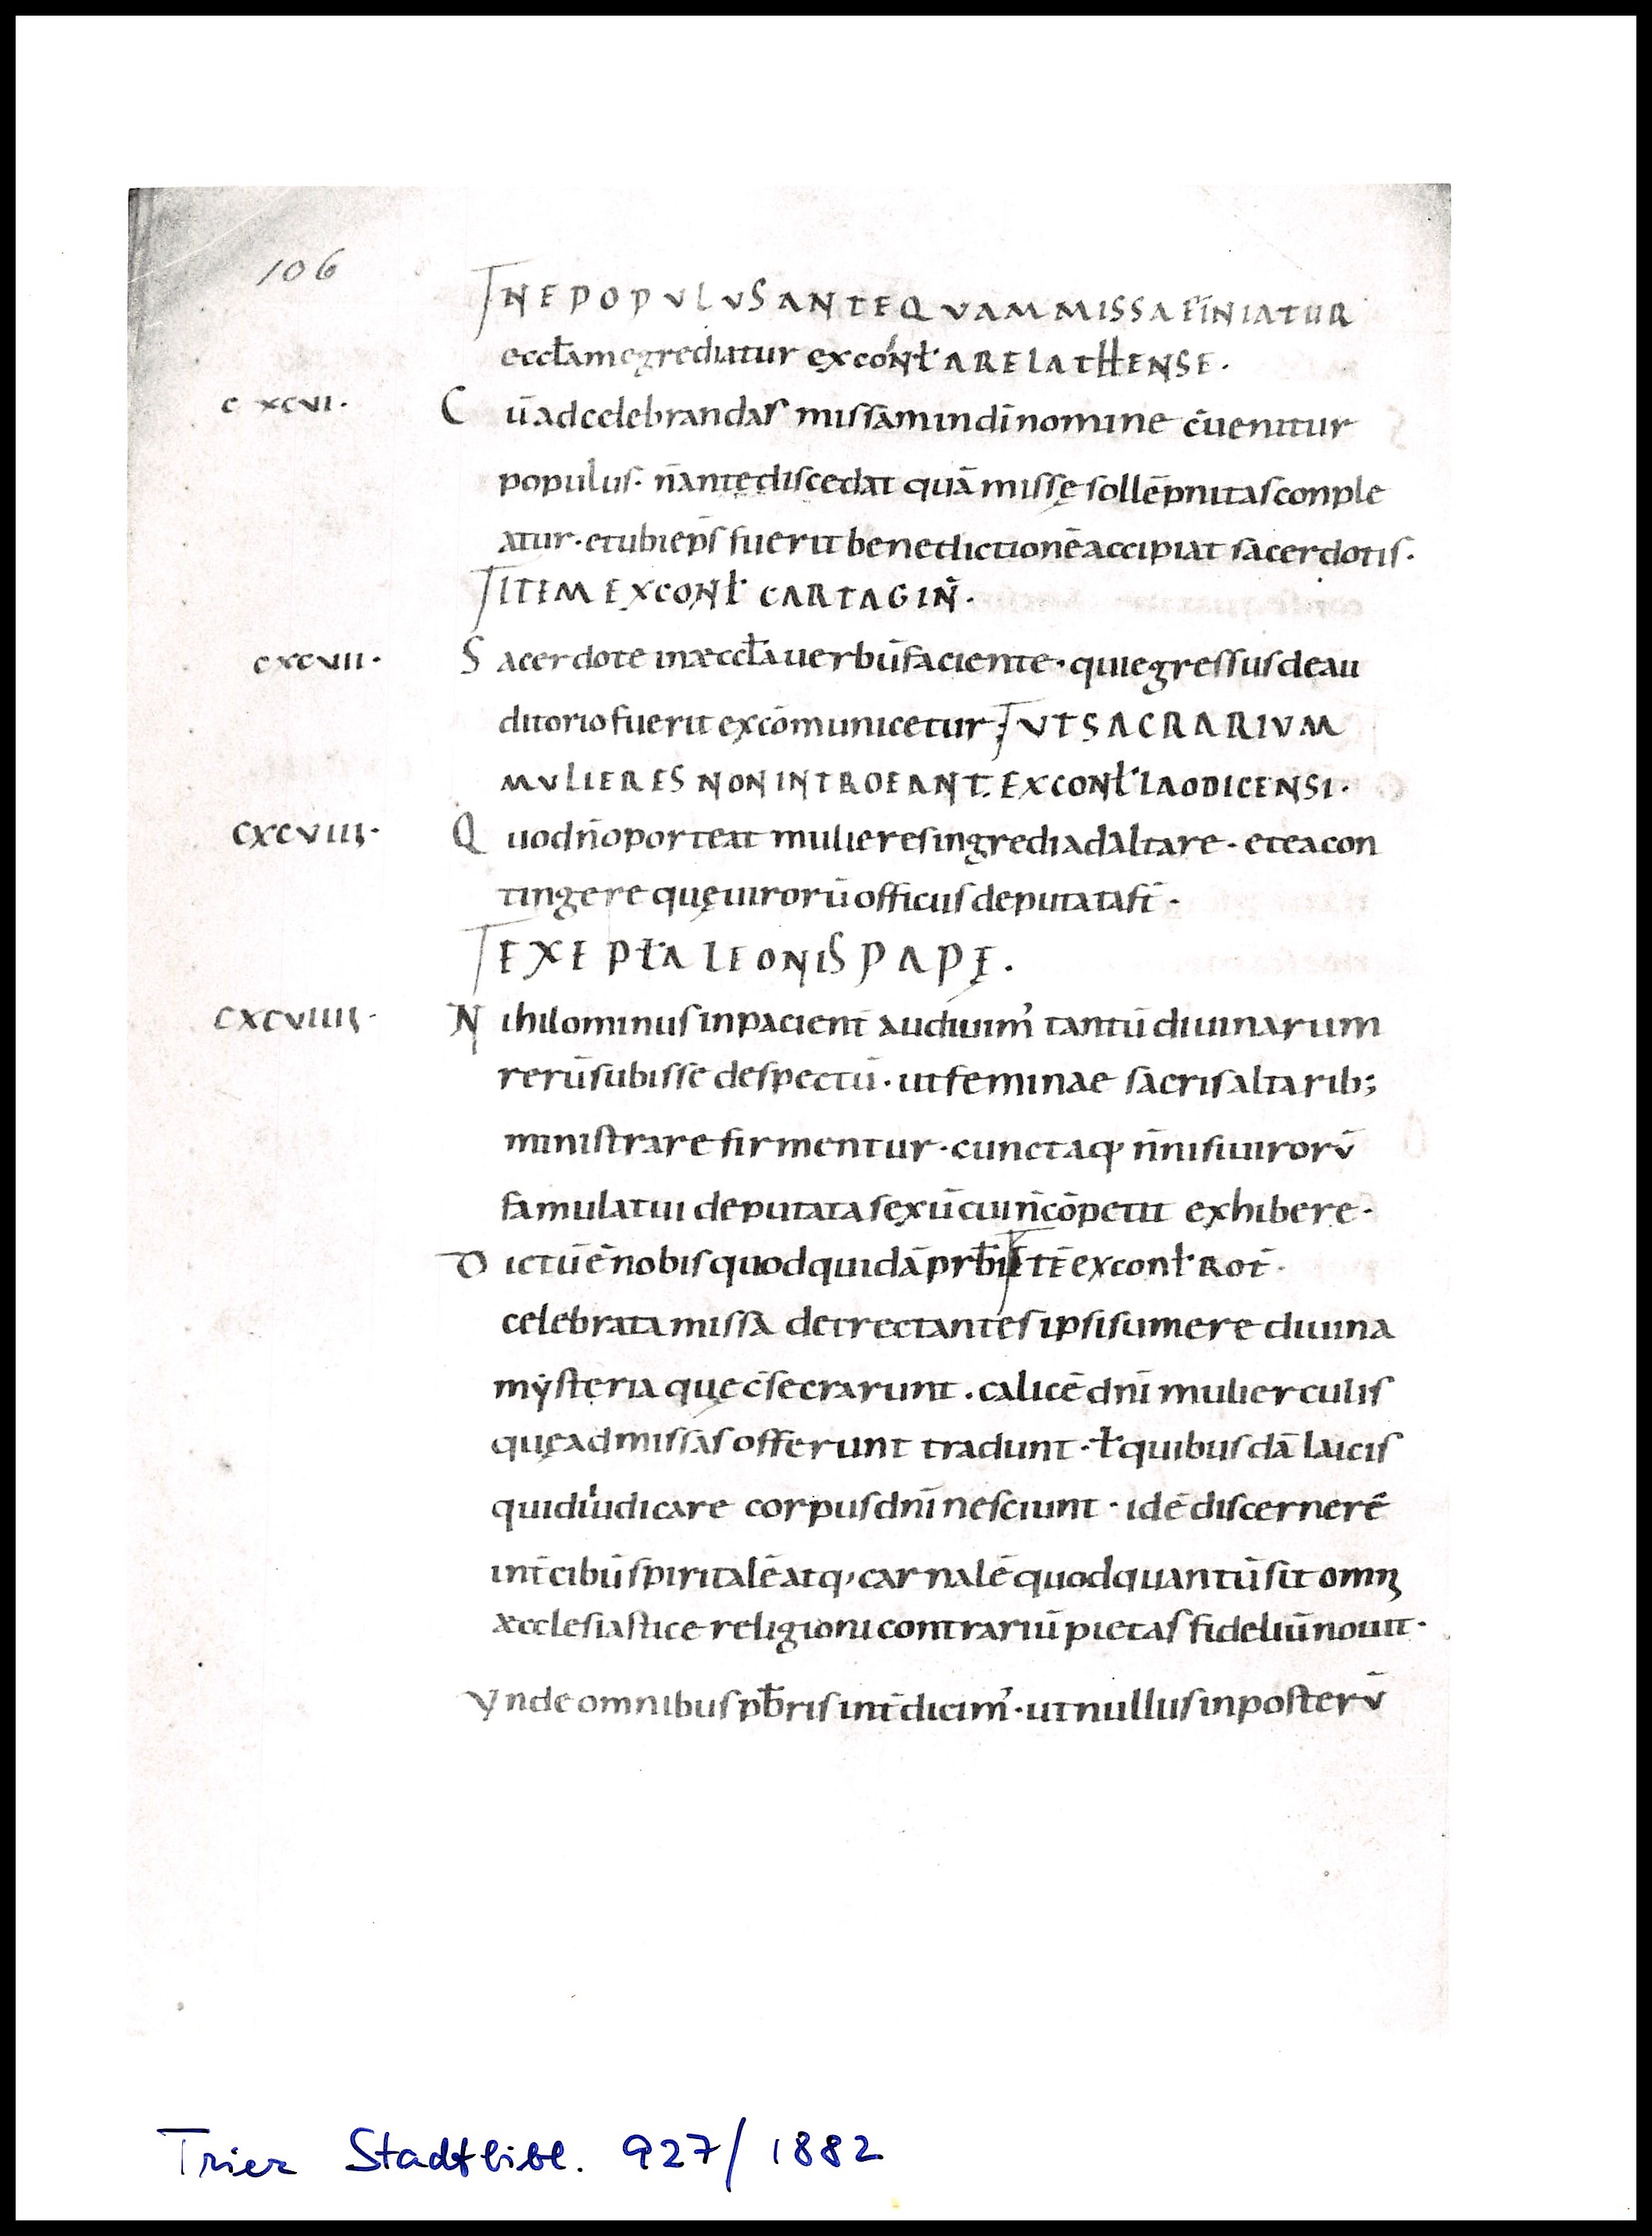 106
NE POPVLVS ANTEQVAM MISSA FINIATUR
eccl̅am egrediatur ex con̅ł ARELATHENSE.
cxcvi. Cu̅ ad celebrandas missam in dī nomine c̅uenitur
populus. n̅ antę discedat qua̅ missę solle̅pnitas conple
atur. et ubi ep̅s fuerit benedictione̅ accipiat sacerdotis.
ITEM EX CONł CARTAGIN̅.
cxcvii. Sacerdote in æccl̅a uerbu̅ faciente. qui egressus de au
ditorio fuerit exco̅municetur; UT SACRARIVM
MVLIERES NON INTROEANT. EX CONł LAODICENSI.
cxcviii. Quod n̅ oporteat mulieres ingredi ad altare. et ea con
tingere quę uiroru̅ officiis deputata st̅.
EX EPł̅A LEONIS PAPĘ.
cxcviiii. Nihilominus inpacient̅ audiuim᾽ tantu̅ diuinarum
reru̅ subisse despectu̅. ut feminae sacris altarib;
ministrare firmentur. cunctaq; n̅ nisi uiroru̅
famulatui deputata sexu̅ cui n̅ co̅petit exhibere.
Dictu̅ e̅ nobis quod quida̅ prb̅i ITE̅ ex conł ROT̅.
celebrata missa detrectantes ipsi sumere diuina
mẏsteria quę c̅secrarunt. calice̅ dn̅i mulierculis
quę ad missas offerunt tradunt. ł quibusda̅ laicis
qui diiudicare corpus dn̅i nesciunt. id e̅ discernere̅
int̅ cibu̅ spiritale̅ atq; carnale̅ quod quantu̅ sit omnị
æcclesiastice religioni contrariu̅ pietas fideliu̅ nouit.
Vnde omnibus pb̅ris int̅dicim᾽. ut nullus in posteru̅
Trier Stadtbibl. 927/1882